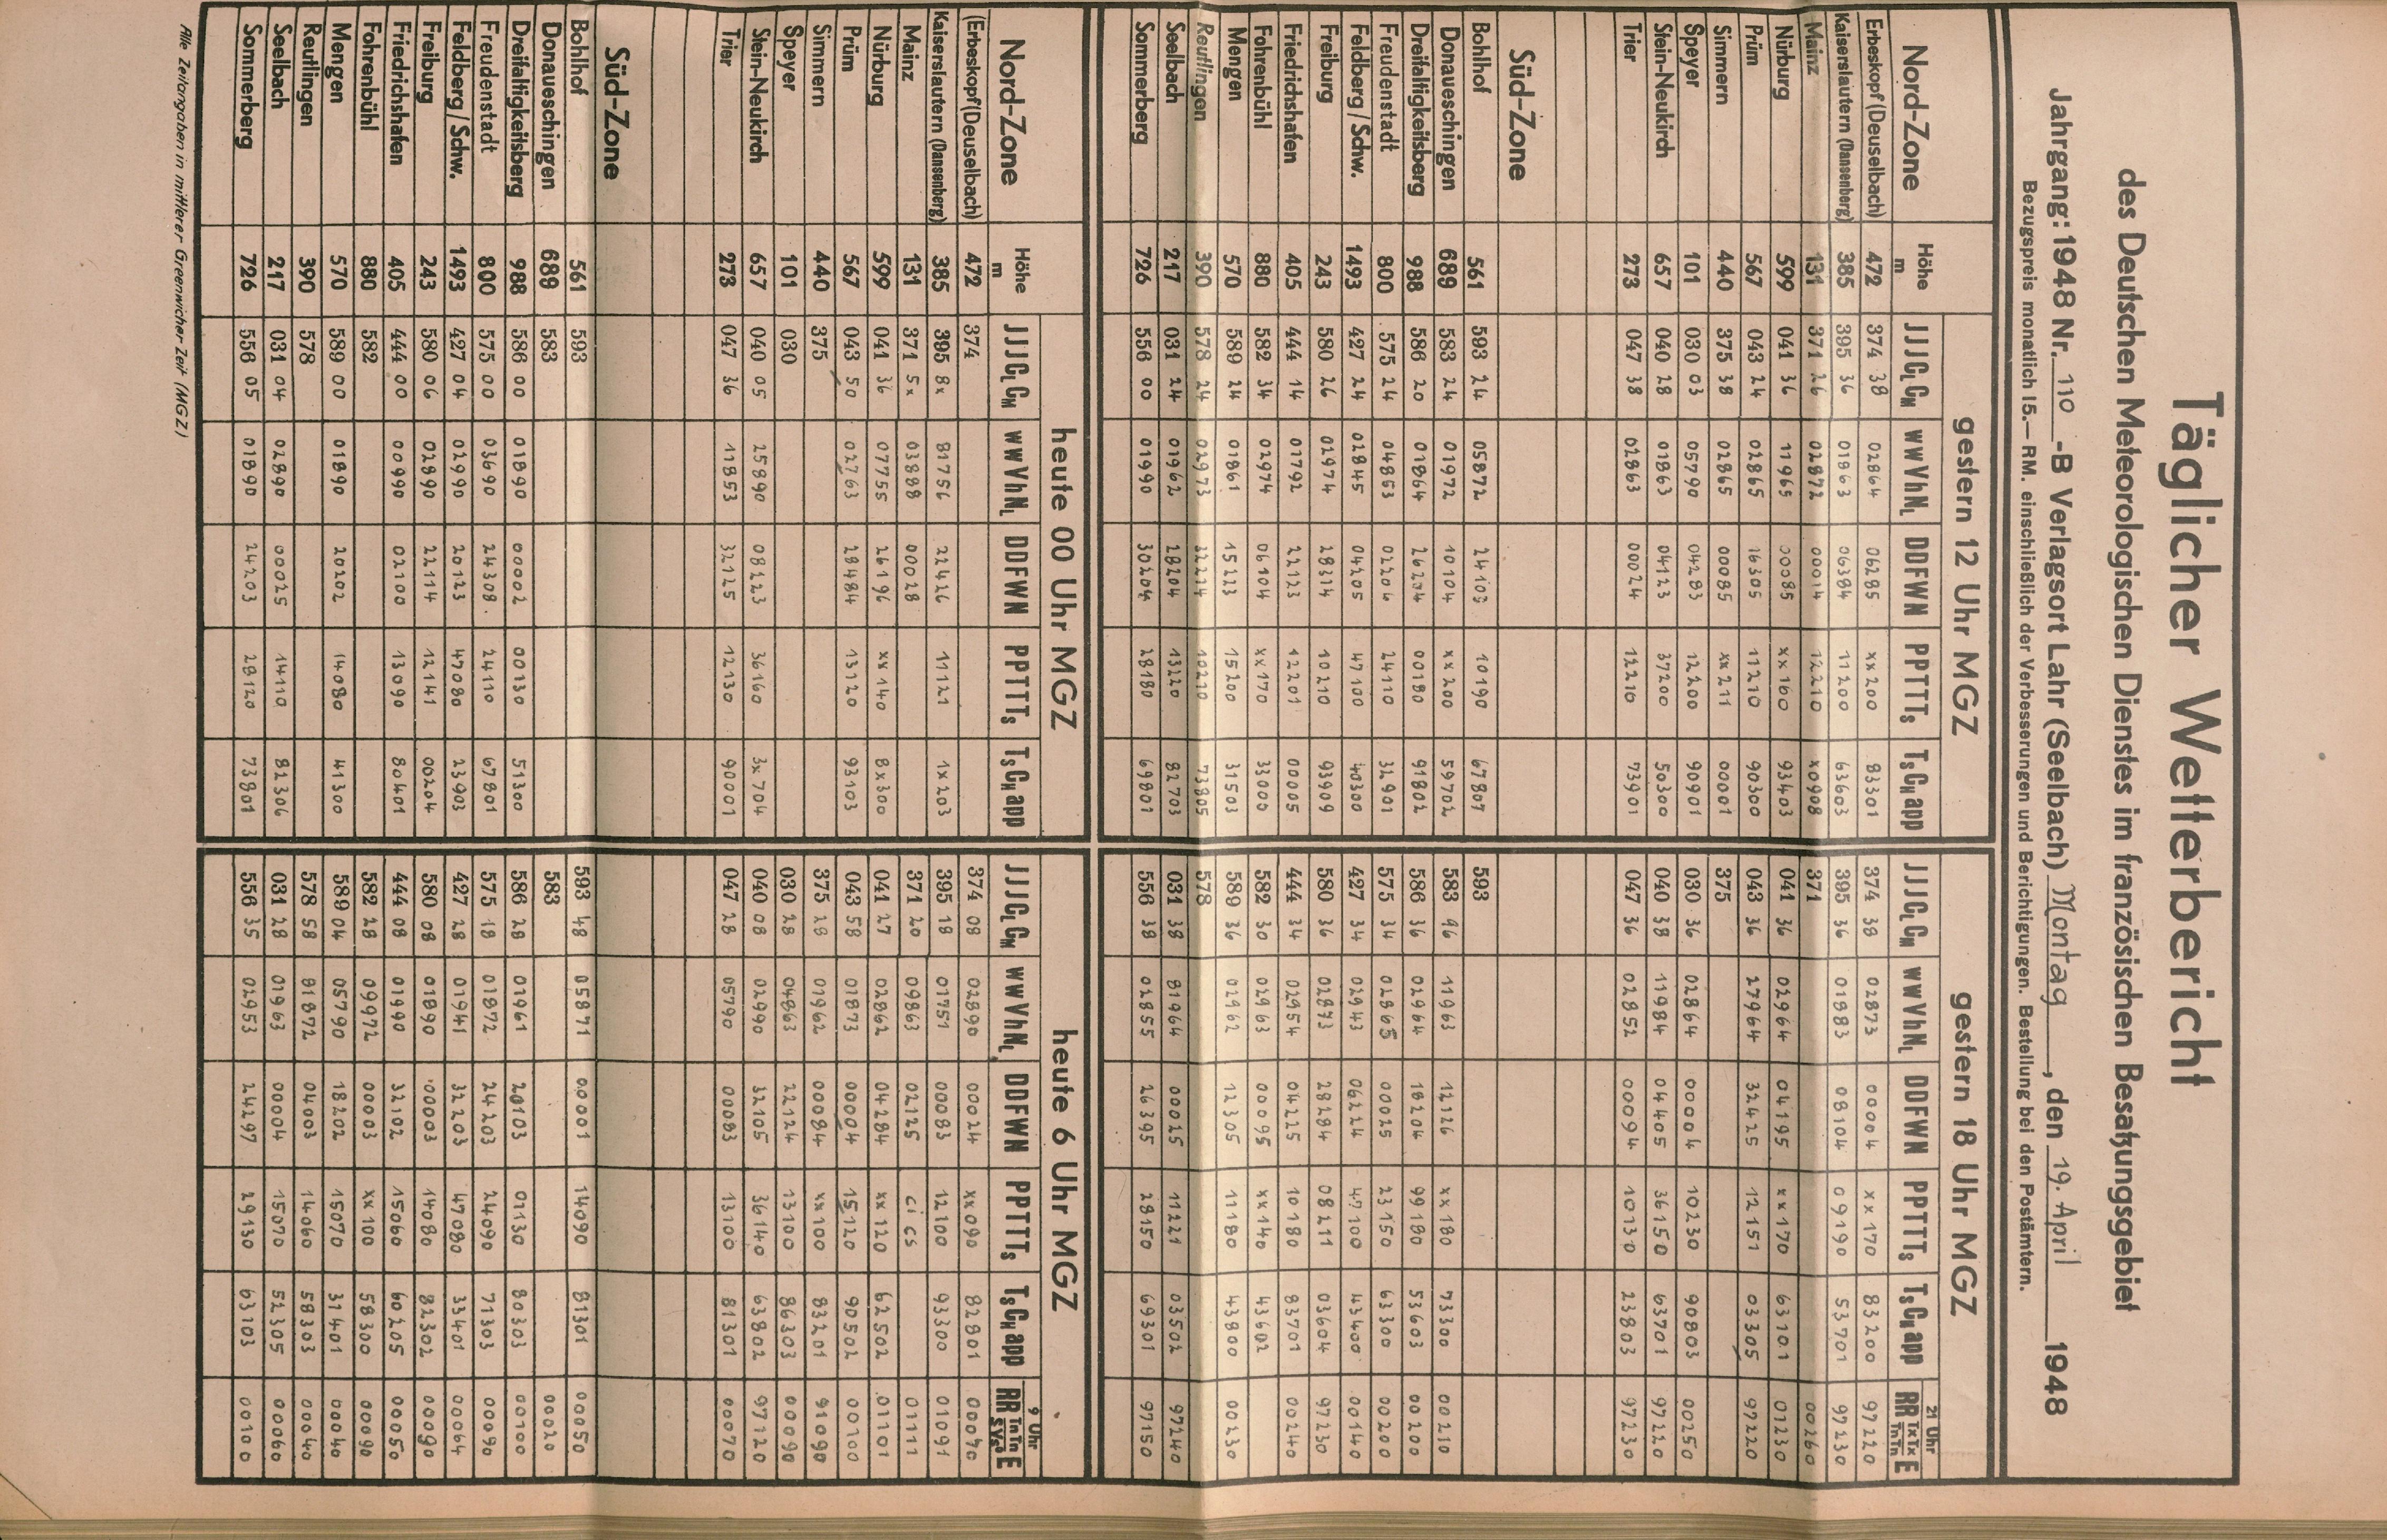 Täglicher Wetterbericht
des Deutschen Meteorologischen Dienstes im französischen Besatzungsgebiet
Jahrgang: 1948 Nr. 110 -B Verlagsort Lahr (Seelbach) Montag, den 19. April 1948
Bezugspreis monatlich 15.— RM. einschließlich der Verbesserungen und Berichtigungen. Bestellung bei den Postämtern.
gestern 12 Uhr MGZ gestern 18 Uhr MGZ
Nord-Zone Höhe m JJJCLCM wwVhNL DDFWN PPTTTs TsCHapp JJJCLCM wwVhNL DDFWN PPTTTs TsCHapp 21 Uhr RR TxTx TnTn E
Erbeskopf (Deuselbach) 472 374 38 02864 06285 xx200 83301 374 38 02873 00004 xx170 83200 97220
Kaiserslautern (Dansenberg) 385 395 36 01863 06384 11200 63603 395 36 01883 08104 09190 53701 97230
Mainz 131 371 26 02872 00014 12210 x0908 371 00260
Nürburg 599 041 36 11965 00085 xx160 93403 041 36 02964 04195 xx170 63101 01230
Prüm 567 043 24 02865 16305 11210 90300 043 36 27964 32425 12151 03305 97220
Simmern 440 375 38 02865 00085 xx211 00001 375
Speyer 101 030 03 05790 04283 12200 90901 030 36 02864 00004 10230 90803 00250
Stein-Neukirch 657 040 28 01863 04123 37200 50300 040 38 11984 04405 36150 63701 97220
Trier 273 047 38 02863 00024 12210 73901 047 36 02852 00094 10130 23803 97230
Süd-Zone
Bohlhof 561 593 24 05872 24103 10190 67807 593
Donaueschingen 689 583 24 01972 10104 xx200 59702 583 96 11963 12126 xx180 73300 00210
Dreifaltigkeitsberg 988 586 20 01864 26204 00180 91802 586 36 02964 18204 99180 53603 00200
Freudenstadt 800 575 24 04853 02204 24110 32901 575 34 02865 00025 23150 63300 00200
Feldberg / Schw. 1493 427 24 02845 04205 47100 40300 427 34 02943 06224 47100 43400 00140
Freiburg 243 580 26 02974 28314 10210 93909 580 36 02893 28284 08211 03604 97230
Friedrichshafen 405 444 14 01792 22123 12201 00005 444 34 02954 04225 10180 83701 00240
Fohrenbühl 880 582 34 02974 06104 xx170 33000 582 30 02963 00095 xx140 43602
Mengen 570 589 24 01861 15223 15200 31503 589 36 02962 12305 11180 43800 00230
Reutlingen 390 578 24 02973 32214 10210 73805 578
Seelbach 217 031 24 01962 18204 13220 82703 031 38 81964 00025 11221 03502 97240
Sommerberg 726 556 00 01990 30204 28180 69801 556 38 02855 26395 28150 69301 97150
heute 00 Uhr MGZ heute 6 Uhr MGZ
Nord-Zone Höhe m JJJCLCM wwVhNL DDFWN PPTTTs TsCHapp JJJCLCM wwVhNL DDFWN PPTTTs TsCHapp 9 Uhr RR TnTn sYsd E
(Erbeskopf (Deuselbach) 472 374 374 08 02890 00024 xx090 82801 00070
Kaiserslautern (Dansenberg) 385 395 8x 81756 22426 11121 1x203 395 18 01751 00083 12100 93300 01091
Mainz 131 371 5x 03888 00028 371 20 09863 02125 cics 01111
Nürburg 599 041 36 07755 26196 xx140 8x300 041 27 02862 04284 xx120 62502 01101
Prüm 567 043 50 02763 28484 13120 93103 043 58 01873 00004 15120 90502 00100
Simmern 440 375 375 28 01962 00084 xx100 83201 91090
Speyer 101 030 030 28 04863 22124 13100 86303 00090
Stein-Neukirch 657 040 05 25890 08123 36160 3x704 040 08 02990 32105 36140 63802 97120
Trier 273 047 36 11853 32125 12130 90001 047 28 05790 00083 13100 81301 00070
Süd-Zone
Bohlhof 561 593 593 48 05871 00001 14090 81301 00050
Donaueschingen 689 583 583 00020
Dreifaltigkeitsberg 988 586 00 01890 00002 00130 51300 586 28 01961 20103 01130 80303 00100
Freudenstadt 800 575 00 03690 24308 24110 67801 575 18 01872 24203 24090 71303 00090
Feldberg / Schw. 1493 427 04 02990 20123 47080 23903 427 28 01941 32203 47080 33401 00064
Freiburg 243 580 06 02890 22114 12141 00204 580 08 01890 00003 14080 82302 00090
Friedrichshafen 405 444 00 00990 02100 13090 80401 444 08 01990 32102 15060 60205 00050
Fohrenbühl 880 582 582 28 09972 00003 xx100 58300 00090
Mengen 570 589 00 01890 20202 14080 41300 589 04 05790 18202 15070 31401 00040
Reutlingen 390 578 578 58 81872 04003 14060 58303 00040
Seelbach 217 031 04 02890 00025 14110 82306 031 28 01963 00004 15070 52305 00060
Sommerberg 726 556 05 01890 24203 28120 73801 556 35 02953 24297 29130 63103 00100
Alle Zeitangaben in mittlerer Greenwicher-Zeit (MGZ)